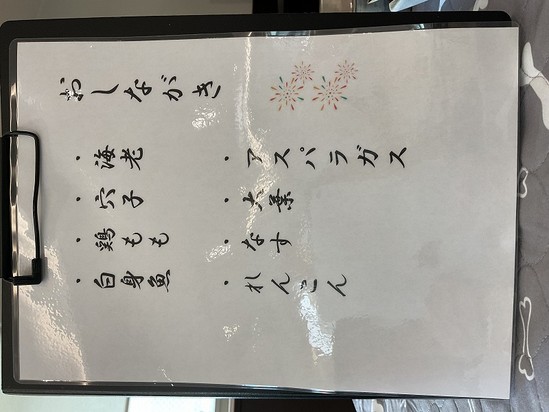 おしながき
・海老
・穴子
・鶏もも
・白身魚
・アスパラガス
・大葉
・なす
・れんこん